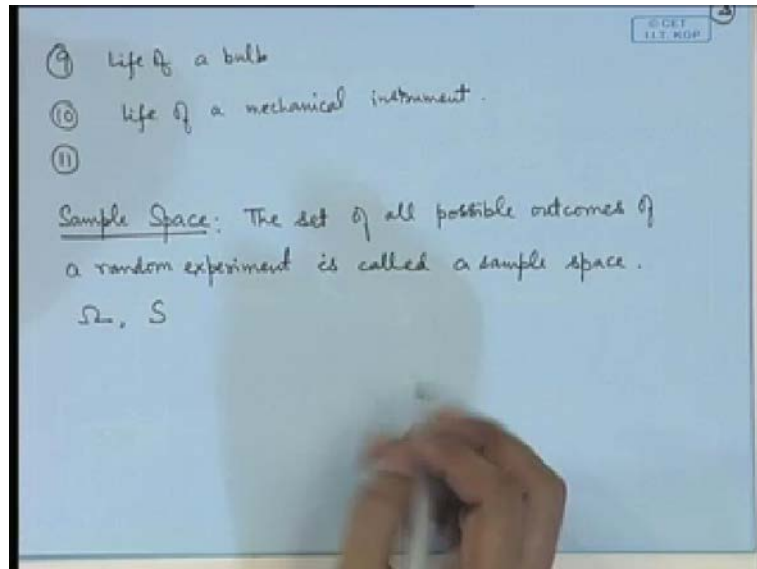 3
© CET
I.I.T. KGP
9 Life of a bulb
10 Life of a mechanical instrument.
11
Sample Space: The set of all possible outcomes of
a random experiment is called a sample space.
Ω, S